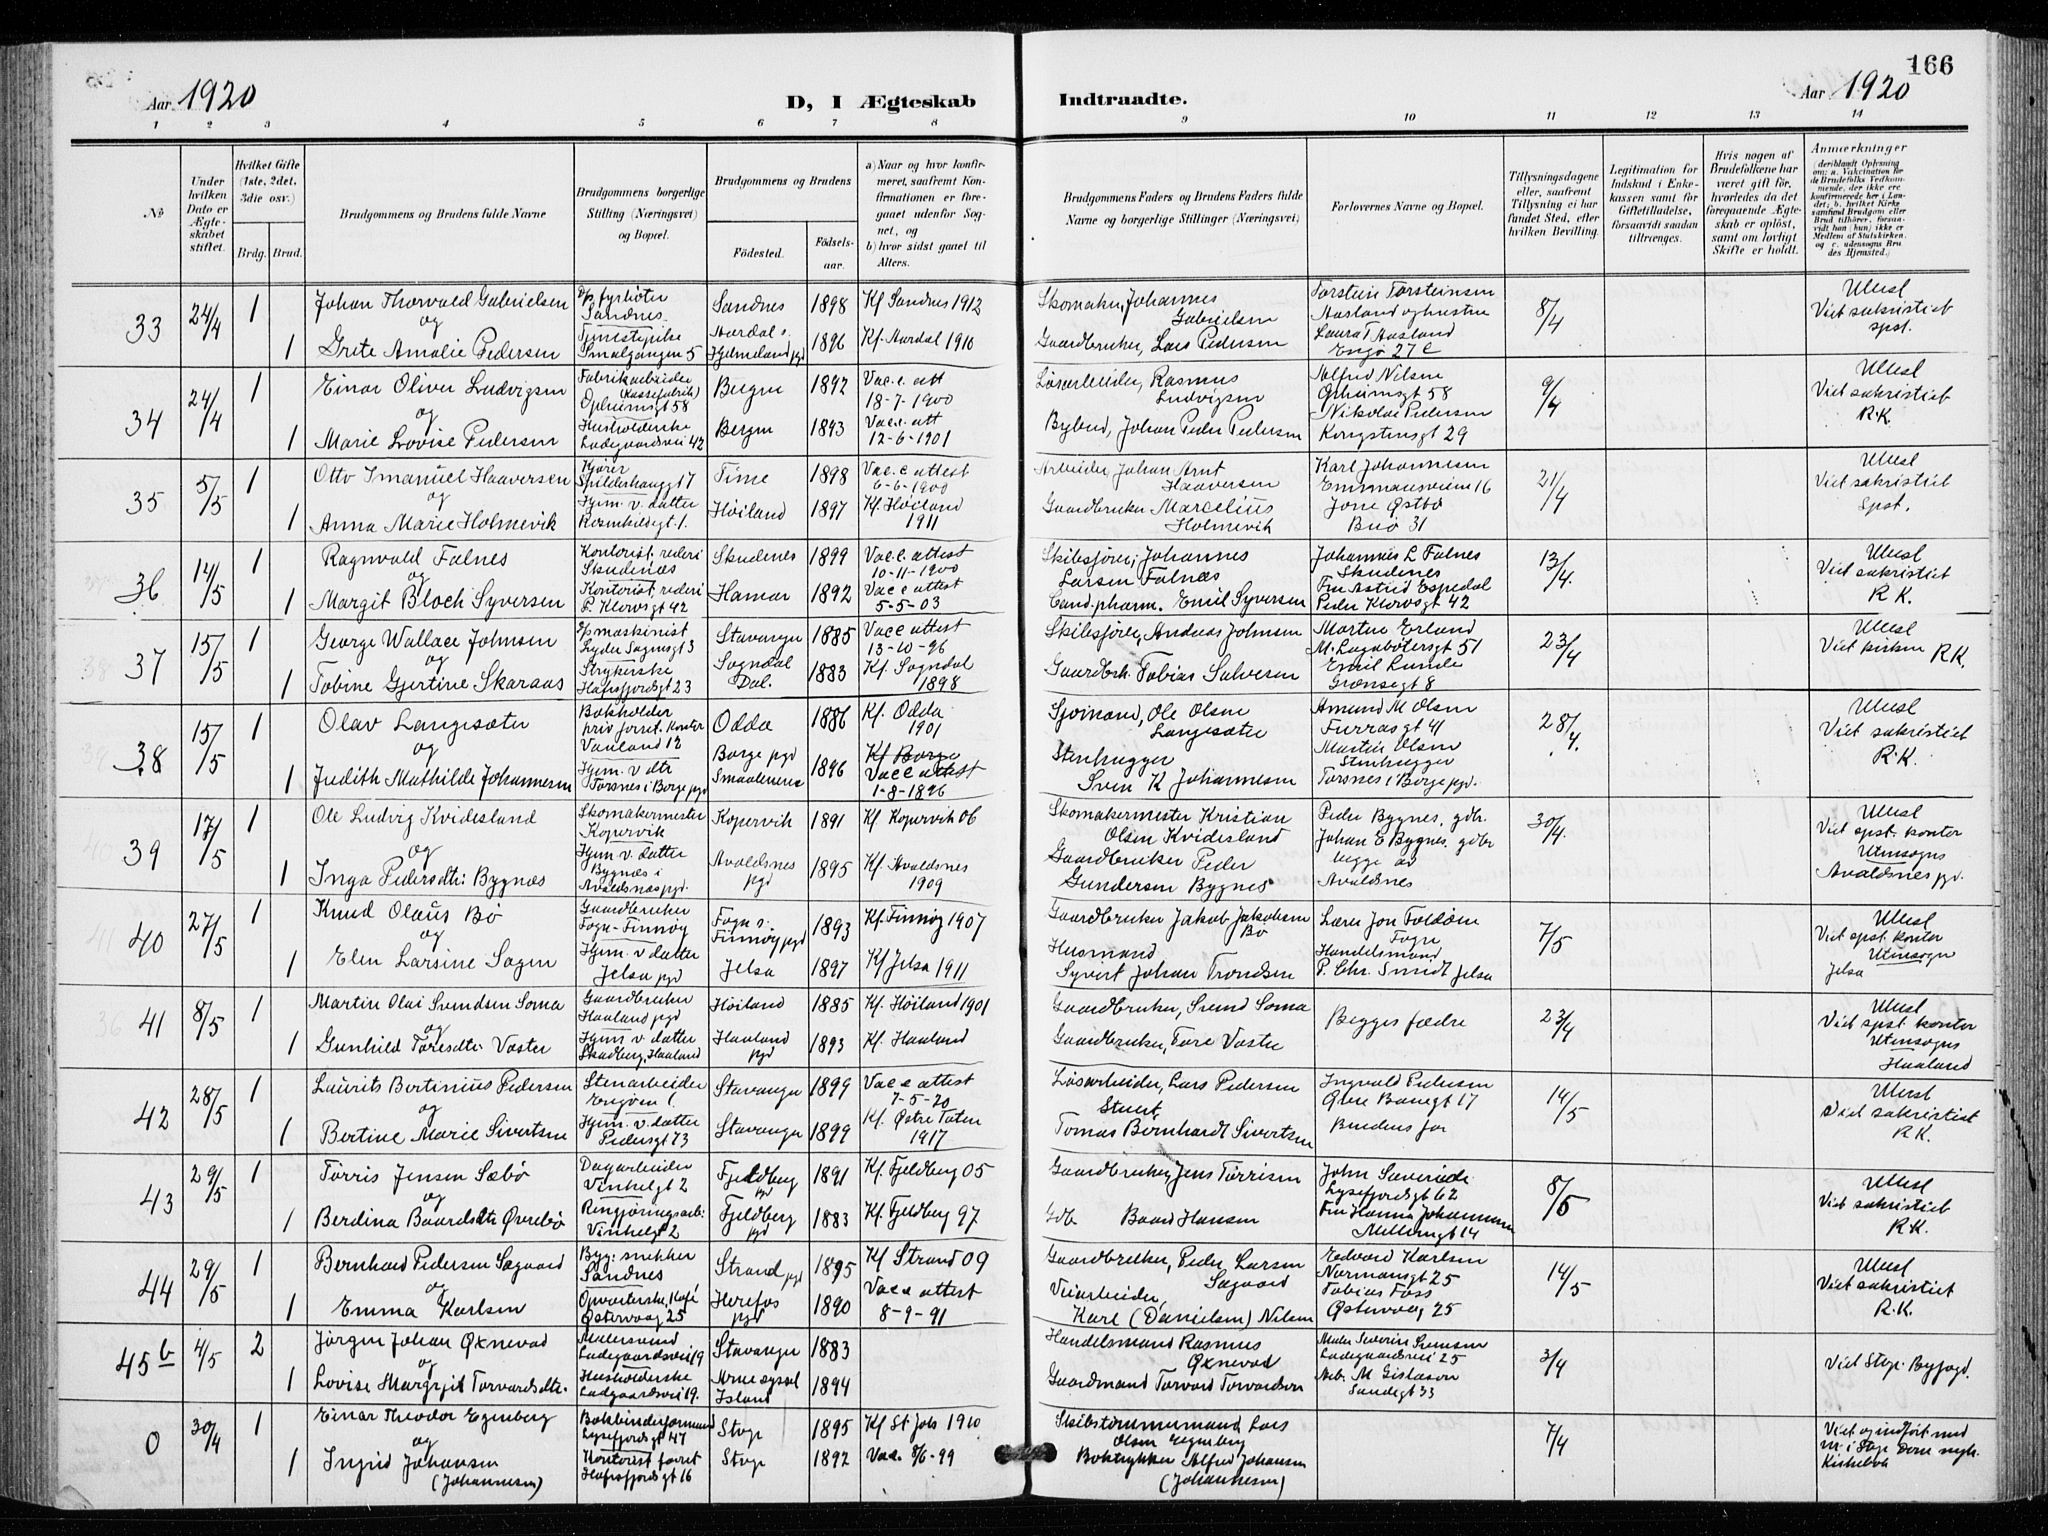 166
Aar 1920
D, I Ægteskab
Indtraadte.
Aar 1920
1 2 3 4 5 6 7 8 9 10 11 12 13 14
No
Under hvilken Dato er Ægteskabet stiftet.
Hvilket Gifte (1ste, 2det, 3die osv.)
Brdg. Brud.
Brudgommens og Brudens fulde Navne
Brudgommens borgerlige Stilling (Næringsvei) og Bopæl.
Brudgommens og Brudens
Fødested.
Fødselsaar.
a) Naar og hvor konfirmeret, saafremt Konfirmationen er foregaaet udenfor Sognet, og
b) hvor sidst gaaet til Alters.
Brudgommens Faders og Brudens Faders fulde Navne og borgerlige Stillinger (Næringsvei)
Forlovernes Navne og Bopæl.
Tillysningsdagene eller, saafremt Tillysning ei har fundet Sted, efter hvilken Bevilling.
Legitimation for Indskud i Enkekassen samt for Giftetilladelse, forsaavidt saadan tiltrænges.
Hvis nogen af Brudefolkene har været gift før, hvorledes da det foregaaende Ægteskab er opløst, samt om lovligt Skifte er holdt.
Anmærkninger
(deriblandt Oplysning om: a. Vaccination for de Brudefolks Vedkommende, der ikke ere konfirmerede her i Landet; b. hvilket Kirkesamfund Brudgom eller Brud tilhører, forsaavidt han (hun) ikke er Medlem af Statskirken, og c. udensogns Brudes Hjemsted.)
33 24/4 1 Johan Thorvald Gabrielsen
fyrbøter Sandnes
Sandnes 1898 Kf Sandnes 1912
Skomaker, Johannes Gabrielsen
Torstein Torsteinsen Aasland og hustru
8/4
Ubesl
Viet sakristiet spst.
og
1 Grete Amalie Pedersen
Tjenestepike Smalgangen 5
Aardal s. Hjelmeland pgd 1896 Kf. Aardal 1910
Gaardbruker, Lars Pedersen
Laura T Aasland Engø 27 C
34 24/4 1 Einar Oliver Ludvigsen
Fabrikarbeider Opheimsgt 58
Bergen 1892 Vac. c. att 18-7-1900
Løsarbeider, Rasmus Ludvigsen
Alfred Nilsen Opheimsgt 58
9/4
Ubesl
Viet sakristiet R.K.
og
1 Marie Lovise Pedersen
Husholderske Ladegaardsvei 42
Bergen 1893 Vac. c. att 12-6-1901
Bybud, Johan Peder Pedersen
Nikolai Pedersen Kongstensgt 29
35 5/5 1 Otto Imanuel Haaversen
Kjører Spilderhaugg 17
Time 1898 Vac. c attest 6-6-1900
Arbeider Johan Arnt Haaversen
Karl Johannesen Emmausveien 16
21/4
Ubesl
Viet sakristiet Spst.
og
1 Anna Marie Holmevik
Hjem. v. datter Rosenkildegt 1.
Høiland 1897 Kf. Høiland 1911
Gaardbruker Marcelius Holmevik
Jone Østbø Buø 31
36 14/5 1 Ragnvald Falnes
Kontorist, rederi Skudenæs
Skudenes 1899 Vac. c. attest 10-11-1900
Skibsfører, Johannes Larsen Falnæs
Johannes L Falnes Skudenes
13/4.
Ubesl
Viet sakristiet R K.
og
1 Margit Bloch Syversen
Kontorist, rederi P. Klowsgt 42
Hamar 1892 Vac c attest 5-5-03
Cand. pharm. Emil Syversen
Fru Astrid Espedal Peder Klowsgt 42
37 15/5 1 George Wallace Johnsen
maskinist Lyder Sagensgt 3
Stavanger 1885 Vac c attest 13-10-96
Skibsfører, Andreas Johnsen
Martin Erland M. Lagabøtersgt 51
23/4
Ubesl
Viet kirken R K.
og
1 Tobine Gjertine Skaraas
Strykerske Hafrsfjordsgt 23
Sogndal Dal. 1883 Kf. Sogndal 1898
Gaardbrk. Tobias Salvesen
Emil Lunde Grønsegt 8
38 15/5 1 Olav Langesæter
Bokholder priv forret. kontor Vaaland 12
Odda 1886 Kf. Odda 1901
Sjømand, Ole Olsen Langesæter
Amund M Olsen Furrasgt 41
28/4.
Ubesl
Viet sakristiet R.K.
og
1 Judith Mathilde Johannesen
Hjem. v dtr Torsnes i Borge pgd
Borge pgd Smaalenene 1896 Kf Borge Vac c attest 1-8-1896
Stenhugger Sven K Johannesen
Martin Olsen Stenhugger Torsnes i Borge pgd.
39 17/5 1 Ole Ludvig Kvidesland
Skomakermester Kopervik
Kopervik 1891 Kf Kopervik 06
Skomakermester Kristian Olsen Kvidesland
Peder Bygnes, gdbr.
30/4.
Ubesl
Viet spst. kontor Utensogns Avaldsnes pgd.
og
1 Inga Pedersdtr. Bygnæs
Hjem v. datter Bygnæs i Avaldsnæs pgd.
Avaldsnes pgd 1895 Kf. Avaldsnes 1909
Gaardbruker Peder Gundersen Bygnes
Johan E Bygnes. gdbr begge av Avaldsnes
40 27/5 1 Knud Olaus Bø
Gaardbruker Fogn-Finnøy
Fogn s. Finnøy pgd 1893 Kf. Finnøy 1907
Gaardbruker Jakob Jakobsen Bø
Lærer Jon Foldøen Fogn
7/5
Ubesl
Viet spst. kontor Utensogn Jelsa
og
1 Elen Larsine Sagen
Hjem. v datter Jelsa pgd
Jelsa 1897 Kf Jelsa 1911
Husmand Syvert Johan Trondsen
Handelsmand P. Chr. Smidt Jelsa
41 8/5 1 Martin Olai Svendsen Soma
Gaardbruker Haaland pgd
Høiland 1885 Kf. Høiland 1901
Gaardbruker, Svend Soma
Begges fædre
23/4
Ubesl
Viet spst. kontor Utensogns Haaland
og
1 Gunhild Toresdtr. Vaster
Hjem v. datter Skadberg, Haaland
Haaland pgd 1893 Kf. Haaland
Gaardbruker, Tore Vaster
42 28/5 1 Laurits Bertinius Pedersen
Stenarbeider Engøen 1.
Stavanger 1899 Vac c attest 7-5-20
Løsarbeider, Lars Pedersen
Ingvald Pedersen Øvre Banegt 17
14/5
Ubesl
Viet sakristiet R K.
og
1 Bertine Marie Sivertsen
Hjem. v. datter Pedersgt 73
Stavanger 1899 Kf. Østre Toten 1917
Stuert, Tomas Bernhardt Sivertsen
Brudens far
43 29/5 1 Tørris Jensen Sæbø
Dagarbeider Vinkelgt 2
Fjeldberg pgd 1891 Kf. Fjeldberg 05
Gaardbruker, Jens Tørrisen
John Sæverude Lysefjordsgt 62
8/5
Ubesl
Viet sakristiet R.K.
og
1 Berdina Baardsdtr Øvrebø
Rengjøringsarb: Vinkelgt 2
Fjeldberg pgd 1883 Kf. Fjeldberg 97
Gdb Baard Hansen
Fru Hanna Johannesen Mellemgt 14
44 29/5 1 Bernhard Pedersen Sagaard
Byg: snekker Sandnes
Strand pgd 1895 Kf Strand 09
Gaardbruker, Peder Larsen Sagaard
Edvard Karlsen Normansgt 25
14/5
Ubesl
Viet sakristiet R.K.
og
1 Emma Karlsen
Opvarterske, Kafé Østervaag 25
Herefos pgd 1890 Vac c attest 8-9-91
Veiarbeider, Karl (Danielsen) Nilsen
Tobias Foss Østervaag 25
45 b 4/5 2 Jørgen Johan Øxnevad
Malersvend Ladegaardsvei 19
Stavanger 1883
Handelsmand Rasmus Øxnevad
Maler Severin Svensen Ladegaardsvei 25
3/4
Viet Stvgr. Byfogd.
og
1 Lovise Margrjet Torvardsdtr.
Husholderske Ladegaardsvei 19.
Arnesyssel Island 1894
Gaardmand Torvard Torvardson
M Gislason Sandegt 33
0 30/4 1 Einar Theodor Egenberg
Bokbinderformand Lysefjordsgt 47
Stvgr 1895 Kf St Joh 1910
Skibstømmermand Lars Olsen Egenberg
7/4
Viet og indført med nr. i Stvgr Domk mgh. Kirkebok
og
1 Ingrid Johansen (Johannesen)
Kontorist forret Hafrsfjordsgt 16
Stvgr 1892 Vac. 8/6-99
Boktrykker Alfred Johansen (Johannesen)